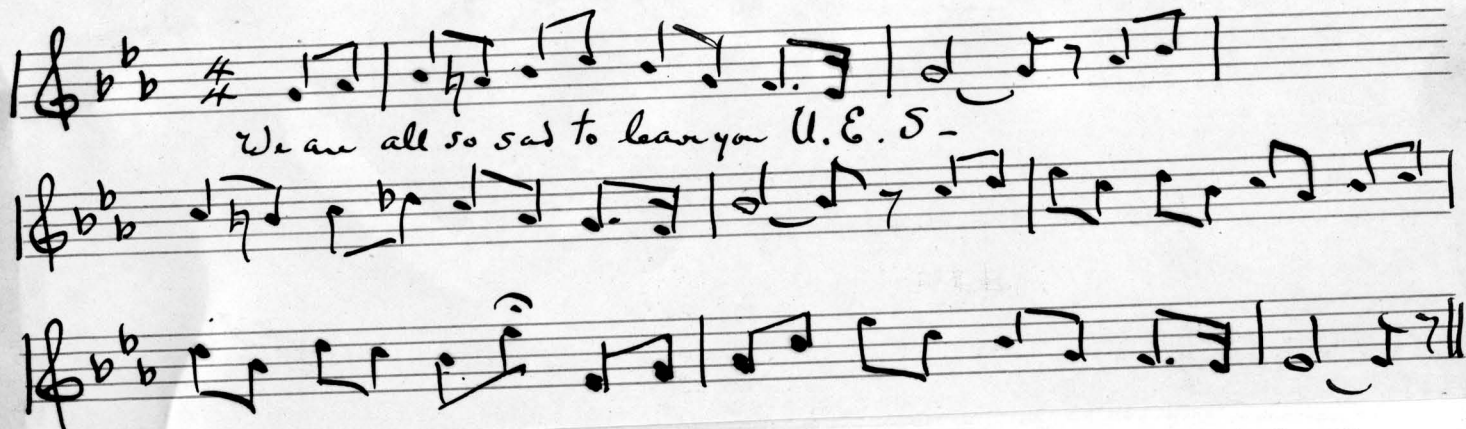 4 4
We are all so sad to leave you U. E. S -